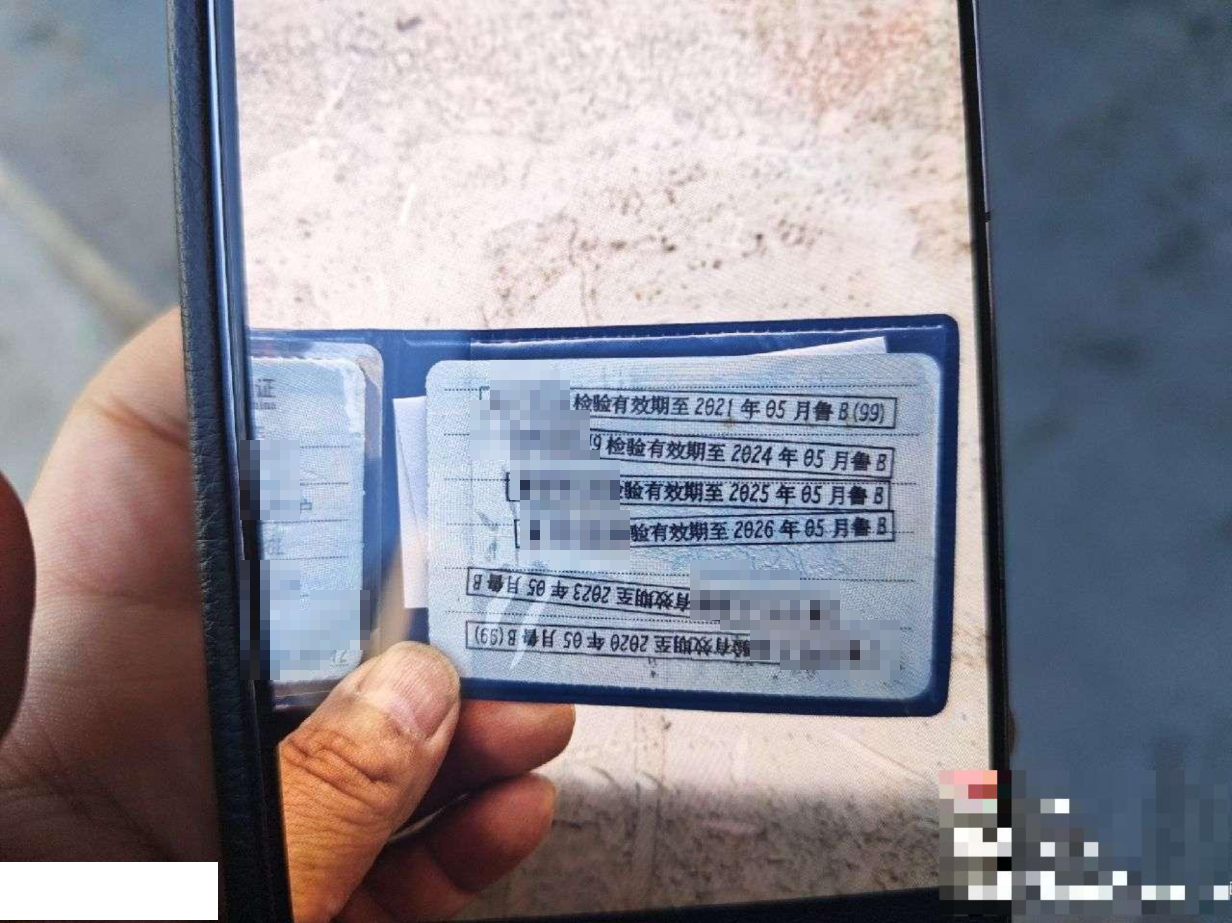 证
检验有效期至2021年05月鲁B(99)
检验有效期至2024年05月鲁B
验有效期至2025年05月鲁B
验有效期至2026年05月鲁B
有效期至2023年05月鲁B
验有效期至2020年05月鲁B(99)